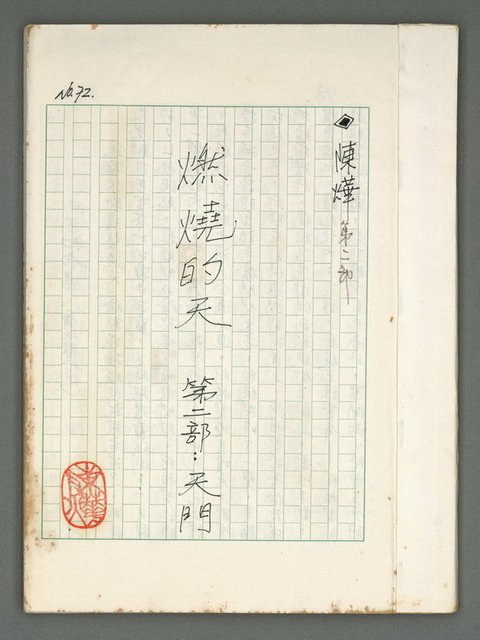 No.72.
◈陳燁 第二部
燃燒的天 第二部：天門